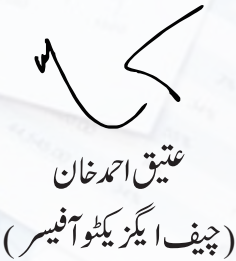 عتیق احمد خان
(چیف ایگزیکٹو آفیسر)